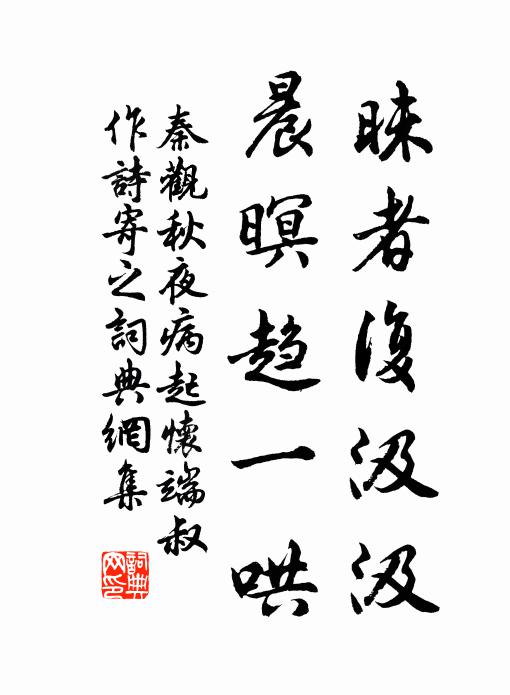 昧者復汲汲
晨暝趋一哄
秦觀秋夜病起懷端叔
作詩寄之詞典網集
詞典网印